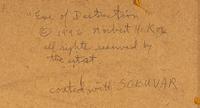 "Eve of Destruction
© 1996 Norbert H. Kox
all rights reserved by
the artist
coated with SOLUVAR